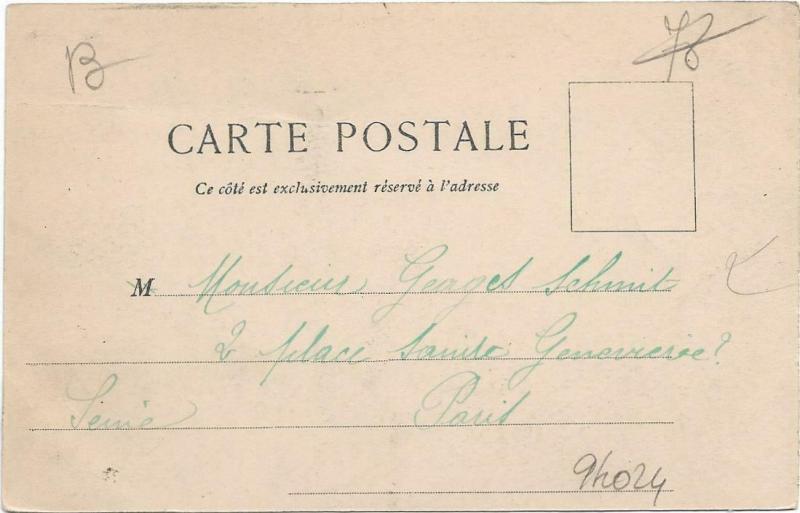 B
CARTE POSTALE
Ce côté est exclusivement réservé à l'adresse
M Monsieur Georges Schmit
2 place Sainte Genevieve?
Seine Paris